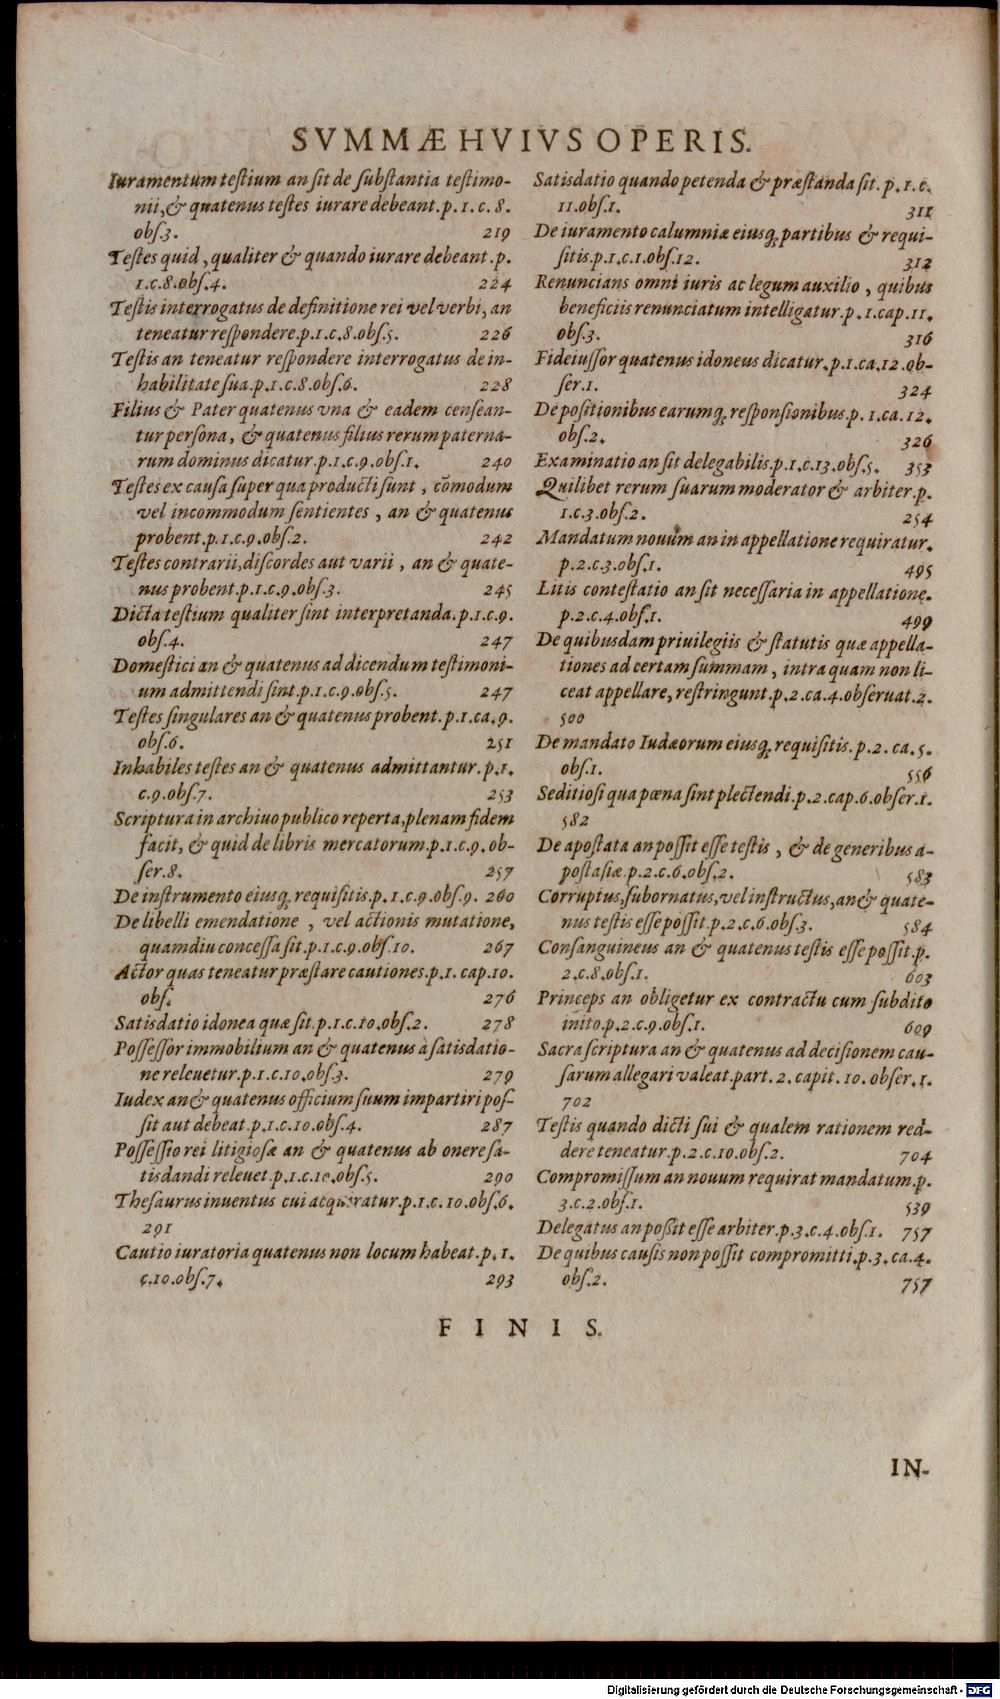 SVMMÆ HVIVS OPERIS.
Iuramentum testium an sit de substantia testimo-
nii, & quatenus testes iurare debeant. p. 1. c. 8.
obs. 3. 219
Testes quid, qualiter & quando iurare debeant. p.
1. c. 8. obs. 4. 224
Testis interrogatus de definitione rei vel verbi, an
teneatur respondere. p. 1. c. 8. obs. 5. 226
Testis an teneatur respondere interrogatus de in-
habilitate sua. p. 1. c. 8. obs. 6. 228
Filius & Pater quatenus vna & eadem censean-
tur persona, & quatenus filius rerum paterna-
rum dominus dicatur. p. 1. c. 9. obs. 1. 240
Testes ex causa super qua producti sunt, cōmodum
vel incommodum sentientes, an & quatenus
probent. p. 1. c. 9. obs. 2. 242
Testes contrarii, discordes aut varii, an & quate-
nus probent. p. 1. c. 9. obs. 3. 245
Dicta testium qualiter sint interpretanda. p. 1. c. 9.
obs. 4. 247
Domestici an & quatenus ad dicendum testimoni-
um admittendi sint. p. 1. c. 9. obs. 5. 247
Testes singulares an & quatenus probent. p. 1. ca. 9.
obs. 6. 251
Inhabiles testes an & quatenus admittantur. p. 1.
c. 9. obs. 7. 253
Scriptura in archiuo publico reperta, plenam fidem
facit, & quid de libris mercatorum. p. 1. c. 9. ob-
ser. 8. 257
De instrumento eiusq; requisitis. p. 1. c. 9. obs. 9. 260
De libelli emendatione, vel actionis mutatione,
quamdiu concessa sit. p. 1. c. 9. obs. 10. 267
Actor quas teneatur præstare cautiones. p. 1. cap. 10.
obs. 276
Satisdatio idonea quæ sit. p. 1. c. 10. obs. 2. 278
Possessor immobilium an & quatenus à satisdatio-
ne releuetur. p. 1. c. 10. obs. 3. 279
Iudex an & quatenus officium suum impartiri pos-
sit aut debeat. p. 1. c. 10. obs. 4. 287
Possessio rei litigiosæ an & quatenus ab onere sa-
tisdandi releuet. p. 1. c. 10. obs. 5. 290
Thesaurus inuentus cui acquiratur. p. 1. c. 10. obs. 6.
291
Cautio iuratoria quatenus non locum habeat. p. 1.
c. 10. obs. 7. 293
Satisdatio quando petenda & præstanda sit. p. 1. c.
11. obs. 1. 311
De iuramento calumniæ eiusq; partibus & requi-
sitis. p. 1. c. 1. obs. 12. 312
Renuncians omni iuris ac legum auxilio, quibus
beneficiis renunciatum intelligatur. p. 1. cap. 11.
obs. 3. 316
Fideiussor quatenus idoneus dicatur. p. 1. ca. 12. ob-
ser. 1. 324
De positionibus earumq; responsionibus. p. 1. ca. 12.
obs. 2. 326
Examinatio an sit delegabilis. p. 1. c. 13. obs. 5. 353
Quilibet rerum suarum moderator & arbiter. p.
1. c. 3. obs. 2. 254
Mandatum nouum an in appellatione requiratur.
p. 2. c. 3. obs. 1. 495
Litis contestatio an sit necessaria in appellatione.
p. 2. c. 4. obs. 1. 499
De quibusdam priuilegiis & statutis quæ appella-
tiones ad certam summam, intra quam non li-
ceat appellare, restringunt. p. 2. ca. 4. obseruat. 2.
500
De mandato Iudæorum eiusq; requisitis. p. 2. ca. 5.
obs. 1. 556
Seditiosi qua pœna sint plectendi. p. 2. cap. 6. obser. 1.
582
De apostata an possit esse testis, & de generibus a-
postasiæ. p. 2. c. 6. obs. 2. 583
Corruptus, subornatus, vel instructus, an & quate-
nus testis esse possit. p. 2. c. 6. obs. 3. 584
Consanguineus an & quatenus testis esse possit. p.
2. c. 8. obs. 1. 603
Princeps an obligetur ex contractu cum subdito
inito. p. 2. c. 9. obs. 1. 609
Sacra scriptura an & quatenus ad decisionem cau-
sarum allegari valeat. part. 2. capit. 10. obser. 1.
702
Testis quando dicti sui & qualem rationem red-
dere teneatur. p. 2. c. 10. obs. 2. 704
Compromissum an nouum requirat mandatum. p.
3. c. 2. obs. 1. 539
Delegatus an possit esse arbiter. p. 3. c. 4. obs. 1. 757
De quibus causis non possit compromitti. p. 3. ca. 4.
obs. 2. 757
FINIS.
IN-
Digitalisierung gefördert durch die Deutsche Forschungsgemeinschaft - DFG